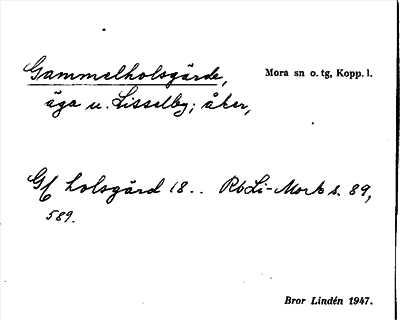 Gammelholsgärde, Mora sn o. tg, Kopp. l.
äga u. Lisselby; åker,
Gf holsgärd 18.. RbLi-Mork s. 89,
589.
Bror Lindén 1947.